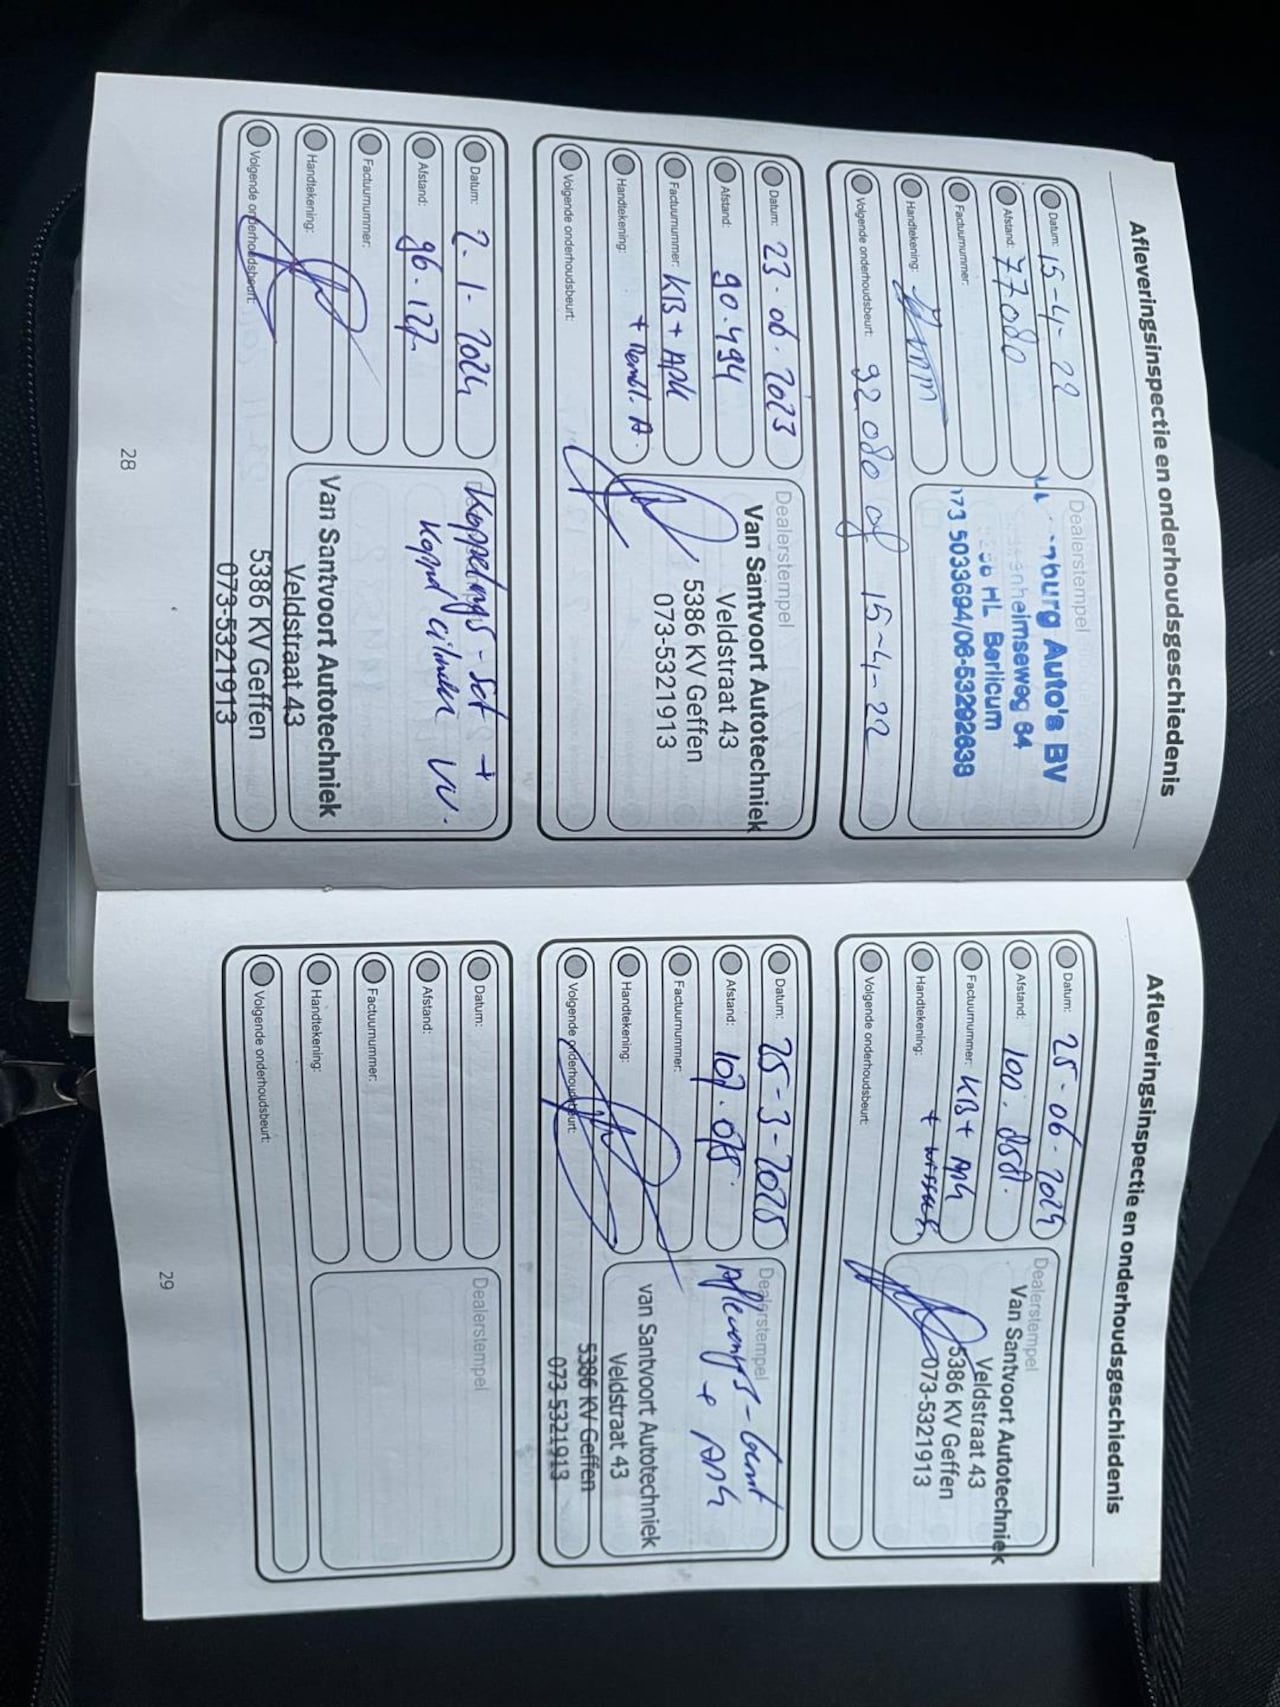 Afleveringsinspectie en onderhoudsgeschiedenis
Datum: 15-4-22
Afstand: 77080
Factuurnummer:
Handtekening:
Volgende onderhoudsbeurt: 92080 of 15-4-22
Dealerstempel
burg Auto's BV
heimseweg 64
HL Berlicum
073 5033694/06-53292638
Datum: 23-06-2023
Afstand: 90.494
Factuurnummer: KB + APK
Handtekening: + Reml. A.
Volgende onderhoudsbeurt:
Dealerstempel
Van Santvoort Autotechniek
Veldstraat 43
5386 KV Geffen
073-5321913
Datum: 2-1-2024
Afstand: 96-127
Factuurnummer:
Handtekening:
Volgende onderhoudsbeurt:
Koppelings-set +
Koppel cilinder VV.
Van Santvoort Autotechniek
Veldstraat 43
5386 KV Geffen
073-5321913
28
Afleveringsinspectie en onderhoudsgeschiedenis
Datum: 25-06-2024
Afstand: 100.
Factuurnummer: KB + APK
Handtekening: + wissers
Volgende onderhoudsbeurt:
Dealerstempel
Van Santvoort Autotechniek
Veldstraat 43
5386 KV Geffen
073-5321913
Datum: 25-3-2025
Afstand:
Factuurnummer:
Handtekening:
Volgende onderhoudsbeurt:
Dealerstempel
Afleverings-beurt
+ APK
van Santvoort Autotechniek
Veldstraat 43
5386 KV Geffen
073 5321913
Datum:
Afstand:
Factuurnummer:
Handtekening:
Volgende onderhoudsbeurt:
Dealerstempel
29